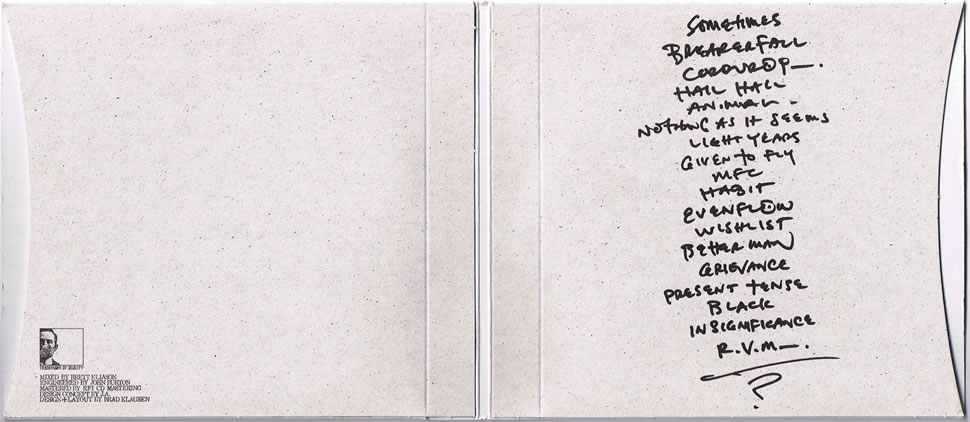 TRADEMARK OF QUALITY
MIXED BY BRETT ELIASON
ENGINEERED BY JOHN BURTON
MASTERED BY RFI CD MASTERING
DESIGN CONCEPT BY J.A.
DESIGN + LAYOUT BY BRAD KLAUSEN
SOMETIMES
BREAKERFALL
CORDUROY—.
HAIL HAIL
ANIMAL -
NOTHING AS IT SEEMS
LIGHT YEARS
GIVEN to FLY
MFC
HABIT
EVENFLOW
WISHLIST
BETTER MAN
GRIEVANCE
PRESENT TENSE
BLACK
INSIGNIFICANCE
R.V.M—.
?